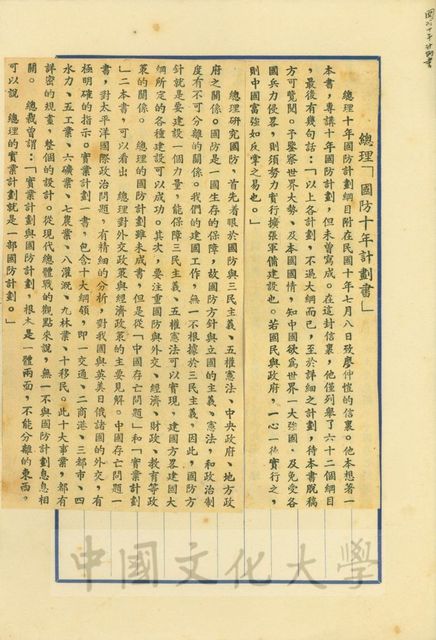 國防十年計劃書
總理「國防十年計劃書」
總理十年國防計劃綱目附在民國十年七月八日致廖仲愷的信裏。他本想著一
本書，專講十年國防計劃，但未曾寫成。在這封信裏，他僅列舉了六十二個綱目
，最後有幾句話：「以上各計劃，不過大綱而已，至於詳細之計劃，待本書脫稿
方可覽閱。予鑒察世界大勢，及本國國情，知中國欲為世界一大強國，及免受各
國兵力侵畧，則須努力實行擴張軍備建設也。若國民與政府，一心一德實行之，
則中國富強如反掌之易也。」
總理研究國防，首先着眼於國防與三民主義、五權憲法、中央政府、地方政
府之關係。國防是一國生存的保障，故國防方針與立國的主義、憲法，和政治制
度有不可分離的關係。我們的建國工作，無一不根據於三民主義，因此，國防方
針就是要建設一個力量，能保障三民主義、五權憲法可以實現，建國方畧建國大
綱所定的各種建設可以成功。其次，要注重國防與外交、經濟、財政、教育等政
策的關係。總理的國防計劃雖未成書，但是從「中國存亡問題」和「實業計劃
」二本書，可以看出　總理對外交政策與經濟政策的主要見解。中國存亡問題一
書，對太平洋國際政治問題，有精細的分析，對我國與英美日俄諸國的外交，有
極明確的指示。實業計劃一書，包含十大綱領，即一交通、二商港、三都市、四
水力、五工業、六礦業、七農業、八灌溉、九林業、十移民。此十大事業，都有
詳密的規畫，整個的設計。從現代總體戰的觀點來說，無一不與國防計劃息息相
關。　總裁曾謂：「實業計劃與國防計劃，根本是一體兩面，不能分離的東西。
可以說　總理的實業計劃就是一部國防計劃。」
中國文化大學